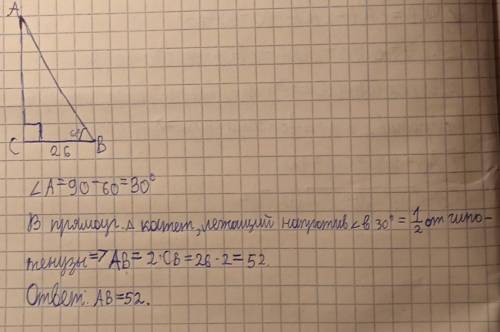 A
60°
C 26 B
∠A=90-60=30°
В прямоуг. △ катет, лежащий напротив ∠ в 30° = 1/2 от гипо-
тенузы => AB = 2·CB = 26·2 = 52.
Ответ: AB=52.